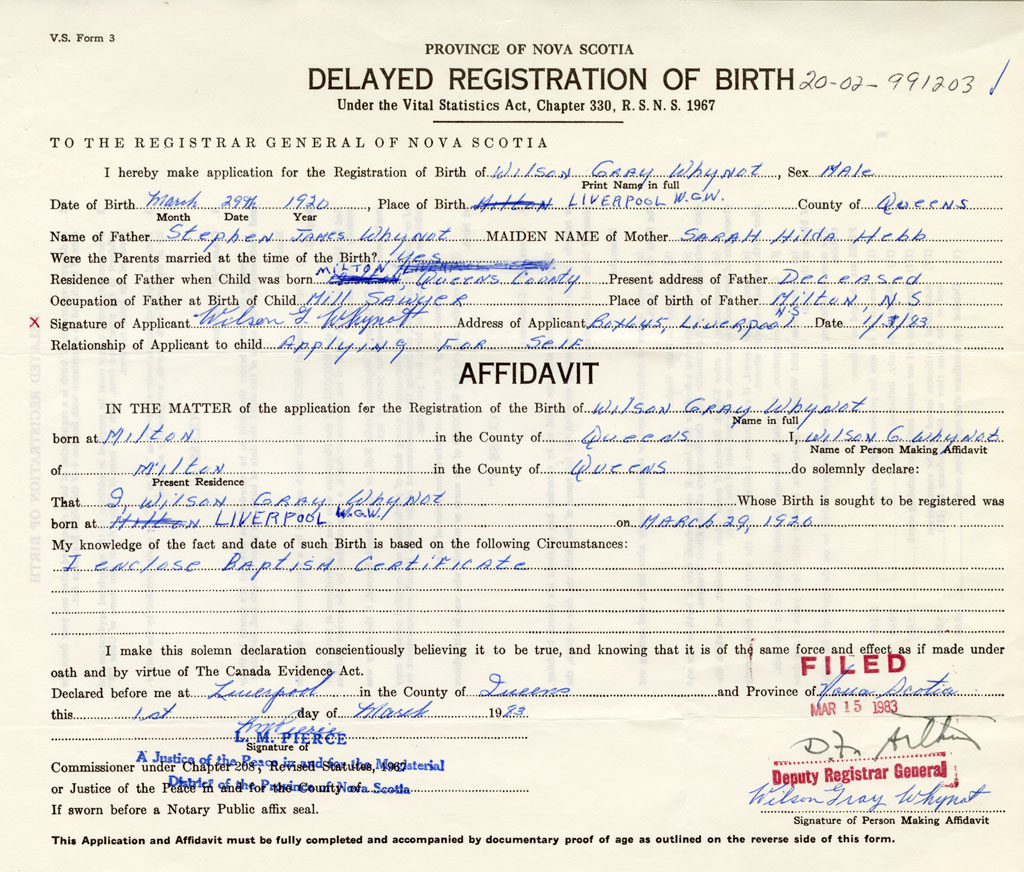 V.S. Form 3
PROVINCE OF NOVA SCOTIA
DELAYED REGISTRATION OF BIRTH 20-02-991203 /
Under the Vital Statistics Act, Chapter 330, R.S.N.S. 1967
TO THE REGISTRAR GENERAL OF NOVA SCOTIA
I hereby make application for the Registration of Birth of Wilson Gray Whynot, Sex Male
Print Name in full
Date of Birth March 29th 1920, Place of Birth Milton LIVERPOOL W.G.W. County of Queens
Month Date Year
Name of Father Stephen James Whynot MAIDEN NAME of Mother Sarah Hilda Hebb
Were the Parents married at the time of the Birth? Yes
MILTON
Residence of Father when Child was born Queens County Present address of Father Deceased
Occupation of Father at Birth of Child Mill Sawyer Place of birth of Father Milton, N S
X Signature of Applicant Wilson G. Whynott Address of Applicant Box 645, Liverpool N.S. Date 1/3/83
Relationship of Applicant to child Applying For Self
AFFIDAVIT
IN THE MATTER of the application for the Registration of the Birth of Wilson Gray Whynot
Name in full
born at Milton in the County of Queens I, Wilson G. Whynot
Name of Person Making Affidavit
of Milton in the County of Queens do solemnly declare:
Present Residence
That I, Wilson Gray Whynot Whose Birth is sought to be registered was
born at Milton LIVERPOOL W.G.W. on MARCH 29, 1920
My knowledge of the fact and date of such Birth is based on the following Circumstances:
I enclose Baptism Certificate
I make this solemn declaration conscientiously believing it to be true, and knowing that it is of the same force and effect as if made under
oath and by virtue of The Canada Evidence Act.
FILED
Declared before me at Liverpool in the County of Queens and Province of Nova Scotia
MAR 15 1983
this 1st day of March 1983
L. M. PIERCE
Signature of
A Justice of the Peace in and for the Magisterial
Commissioner under Chapter 208, Revised Statutes, 1967
District of the Province of Nova Scotia
or Justice of the Peace in and for the County of
Deputy Registrar General
Wilson Gray Whynot
If sworn before a Notary Public affix seal.
Signature of Person Making Affidavit
This Application and Affidavit must be fully completed and accompanied by documentary proof of age as outlined on the reverse side of this form.